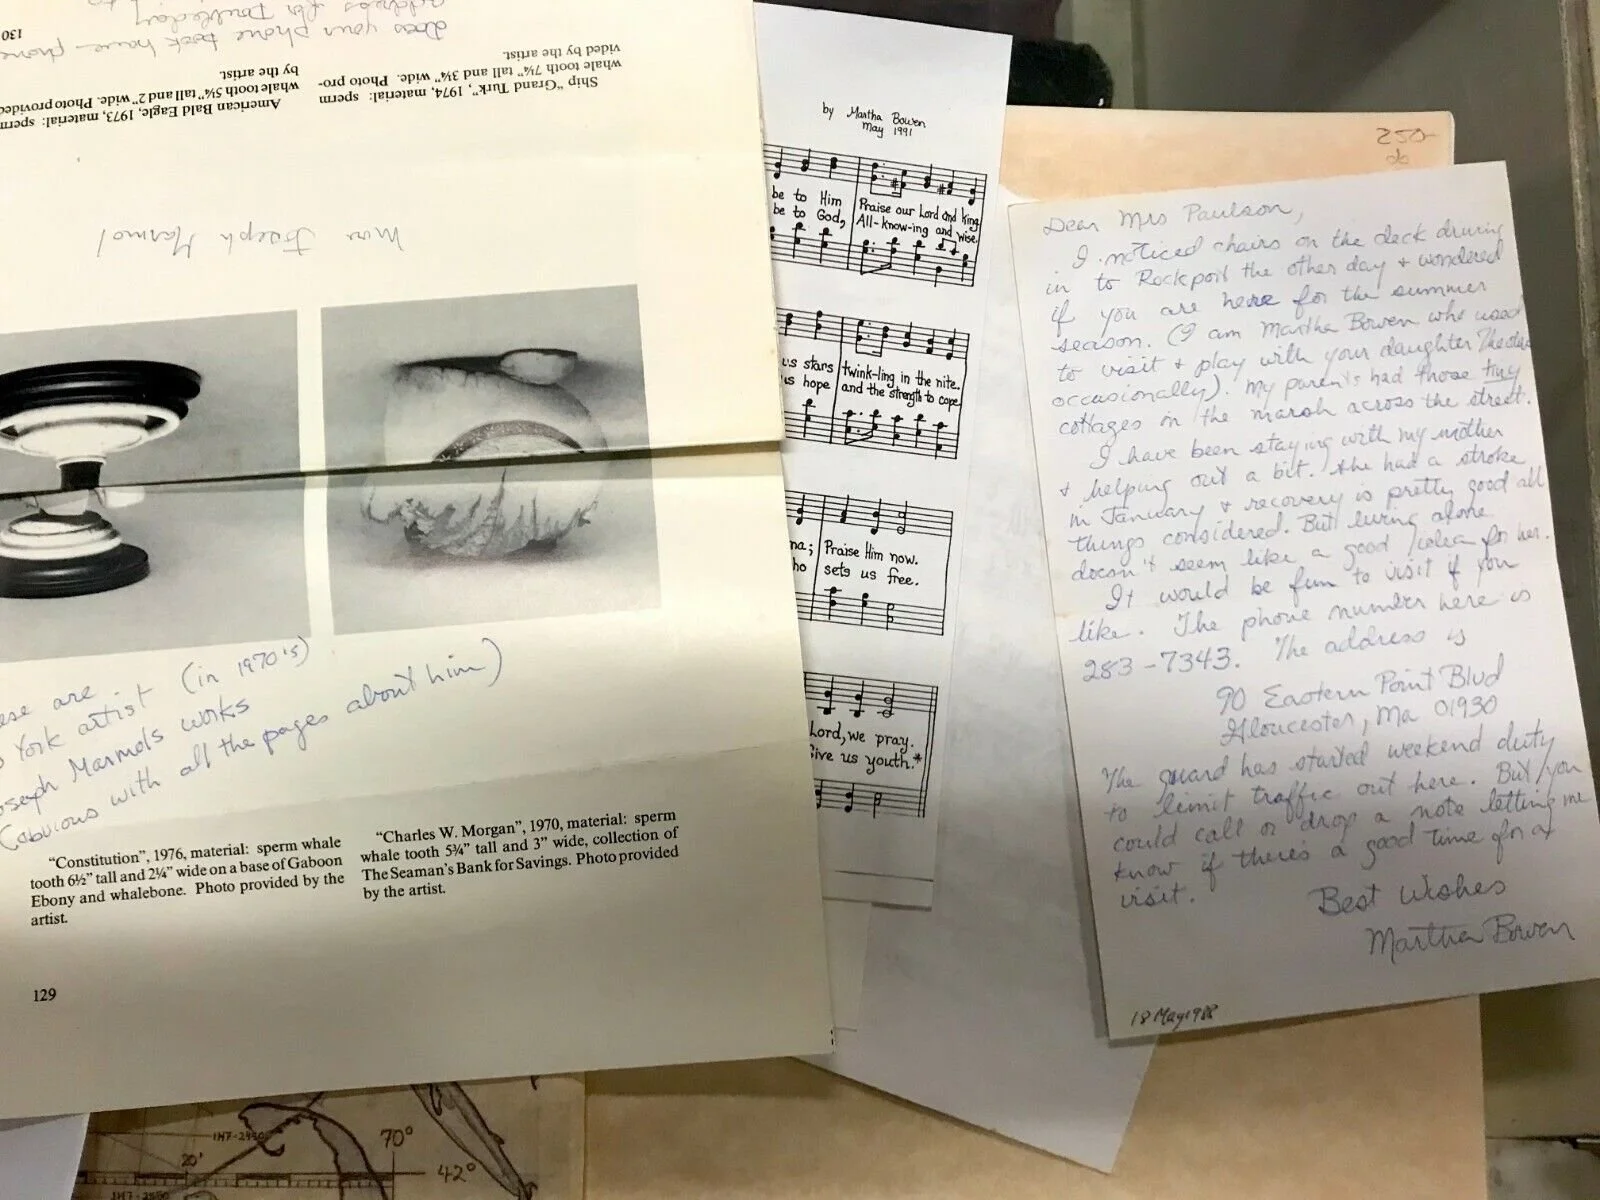 130
does your phone book have phone
address for Doubleday to
Ship "Grand Turk", 1974, material: sperm
whale tooth 7¼" tall and 3¼" wide. Photo pro-
vided by the artist.
American Bald Eagle, 1973, material: sperm
whale tooth 5¼" tall and 2" wide. Photo provided
by the artist.
Joseph Marmol
(in 1970's)
York artist
Joseph Marmols works
with all the pages about him)
"Constitution", 1976, material: sperm whale
tooth 6½" tall and 2¼" wide on a base of Gaboon
Ebony and whalebone. Photo provided by the
artist.
"Charles W. Morgan", 1970, material: sperm
whale tooth 5¾" tall and 3" wide, collection of
The Seaman's Bank for Savings. Photo provided
by the artist.
129
by Martha Bowen
May 1991
be to Him Praise our Lord and King
be to God, All-know-ing and wise.
us stars twink-ling in the nite.
us hope and the strength to cope
na; Praise Him now.
ho sets us free.
Lord, we pray.
Give us youth.*
250-
Dear Mrs Paulson,
I noticed chairs on the deck driving
in to Rockport the other day + wondered
if you are here for the summer
season. (I am Martha Bowen who used
to visit + play with your daughter
occasionally). My parents had those tiny
cottages in the marsh across the street.
I have been staying with my mother
+ helping out a bit. She had a stroke
in January + recovery is pretty good all
things considered. But living alone
doesn't seem like a good idea for her.
It would be fun to visit if you
like. The phone number here is
283-7343. The address is
90 Eastern Point Blvd
Gloucester, Ma 01930
The guard has started weekend duty
to limit traffic out here. But you
could call or drop a note letting me
know if there's a good time for a
visit.
Best Wishes
Martha Bowen
18 May 1988
1H7-2950
20'
70°
42°